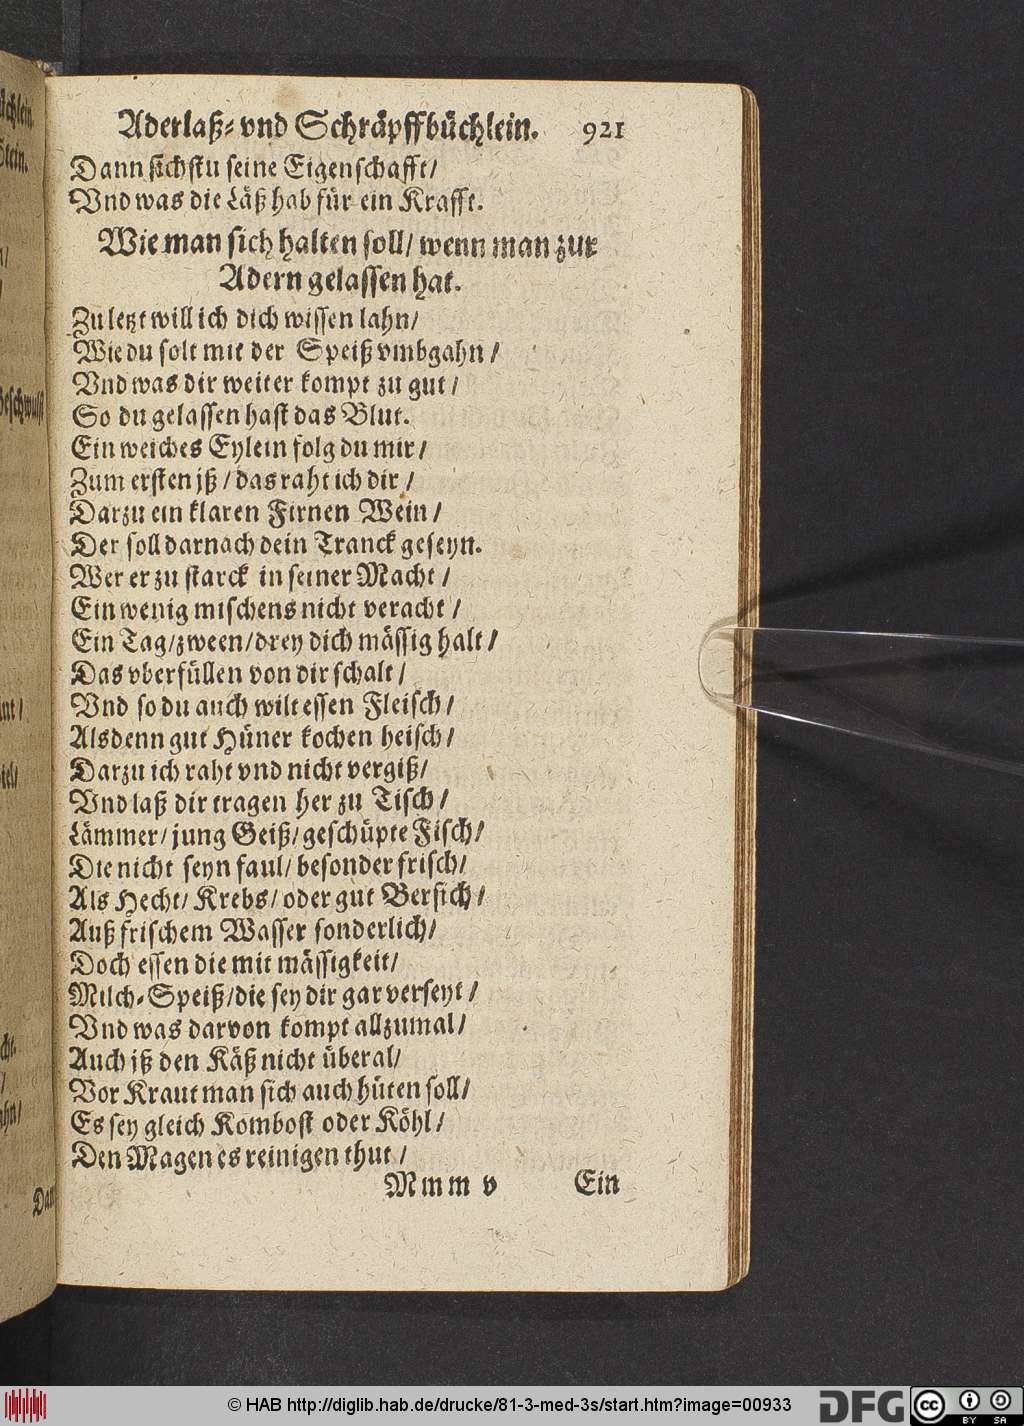 Aderlaß- vnd Schräpffbüchlein. 921
Dann sichstu seine Eigenschafft/
Vnd was die Läß hab für ein Krafft.
Wie man sich halten soll/ wenn man zur
Adern gelassen hat.
Zu letzt will ich dich wissen lahn/
Wie du solt mit der Speiß vmbgahn/
Vnd was dir weiter kompt zu gut/
So du gelassen hast das Blut.
Ein weiches Eylein folg du mir/
Zum ersten jß/ das raht ich dir/
Darzu ein klaren Firnen Wein/
Der soll darnach dein Tranck geseyn.
Wer er zu starck in seiner Macht/
Ein wenig mischens nicht veracht/
Ein Tag/ zween/ drey dich mässig halt/
Das vberfüllen von dir schalt/
Vnd so du auch wilt essen Fleisch/
Alsdenn gut Hüner kochen heisch/
Darzu ich raht vnd nicht vergiß/
Vnd laß dir tragen her zu Tisch/
Lämmer/ jung Geiß/ geschüpte Fisch/
Die nicht seyn faul/ besonder frisch/
Als Hecht/ Krebs/ oder gut Bersich/
Auß frischem Wasser sonderlich/
Doch essen die mit mässigkeit/
Milch-Speiß/ die sey dir gar verseyt/
Vnd was darvon kompt allzumal/
Auch jß den Käß nicht überal/
Vor Kraut man sich auch hüten soll/
Es sey gleich Kombost oder Köhl/
Den Magen es reinigen thut/
Mmm v Ein
© HAB http://diglib.hab.de/drucke/81-3-med-3s/start.htm?image=00933
DFG
cc BY SA